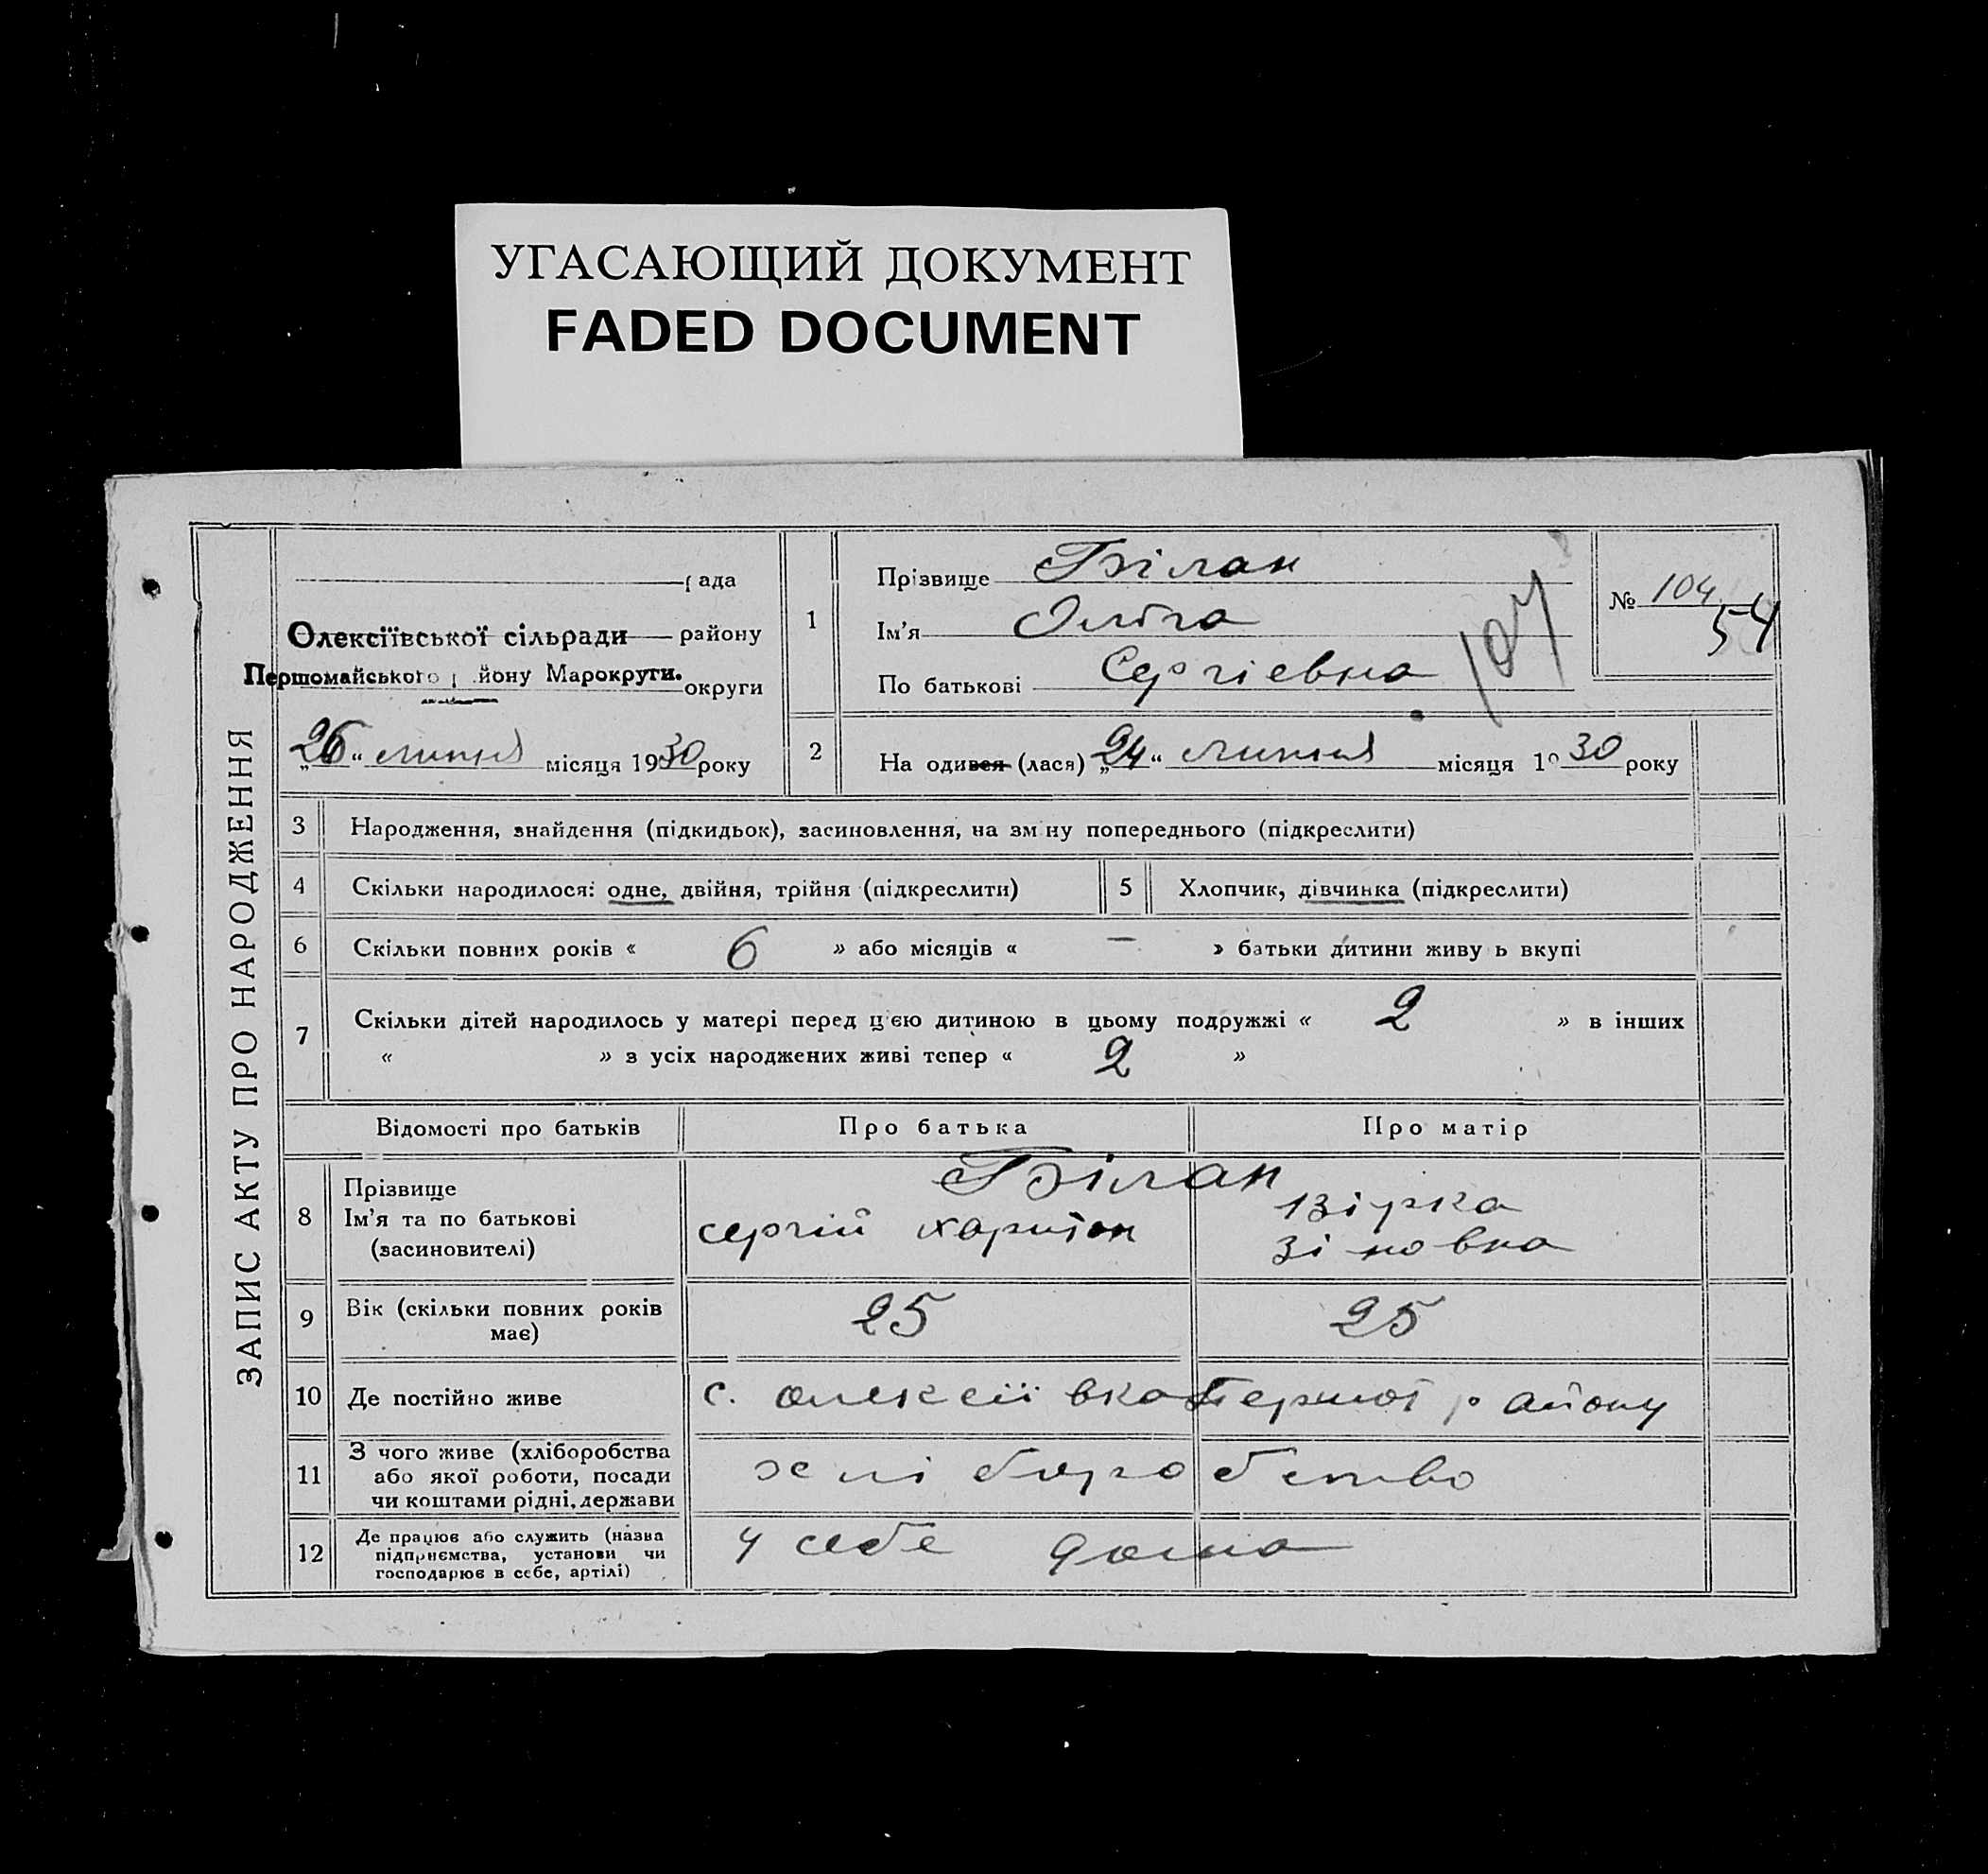 УГАСАЮЩИЙ ДОКУМЕНТ
FADED DOCUMENT
ЗАПИС АКТУ ПРО НАРОДЖЕННЯ
рада
Олексіївської сільради району
Першомайського р йону Марокруги.
округи
„26“ липня місяця 1930 року
1
Прізвище Білан
Ім'я Ольга
По батькові Сергіевна
107
№ 104
54
2
На одився (лася) „24“ липня місяця 19 30 року
3 Народження, знайдення (підкидьок), засиновлення, на зм ну попереднього (підкреслити)
4 Скільки народилося: одне, двійня, трійня (підкреслити)
5 Хлопчик, дівчинка (підкреслити)
6 Скільки повних років « 6 » або місяців « — » батьки дитини живу ь вкупі
7 Скільки дітей народилось у матері перед цією дитиною в цьому подружжі « 2 » в інших
« » з усіх народжених живі тепер « 2 »
Відомості про батьків Про батька Про матір
8 Прізвище
Ім'я та по батькові
(засиновителі)
Білан
сергій харитон
зіновна
9 Вік (скільки повних років
має)
25 25
10 Де постійно живе с. олексіївка Першої району
11 З чого живе (хліборобства
або якої роботи, посади
чи коштами рідні, держави
хлі боро бство
12 Де працює або служить (назва
підприємства, установи чи
господарює в себе, артілі)
у себе дома